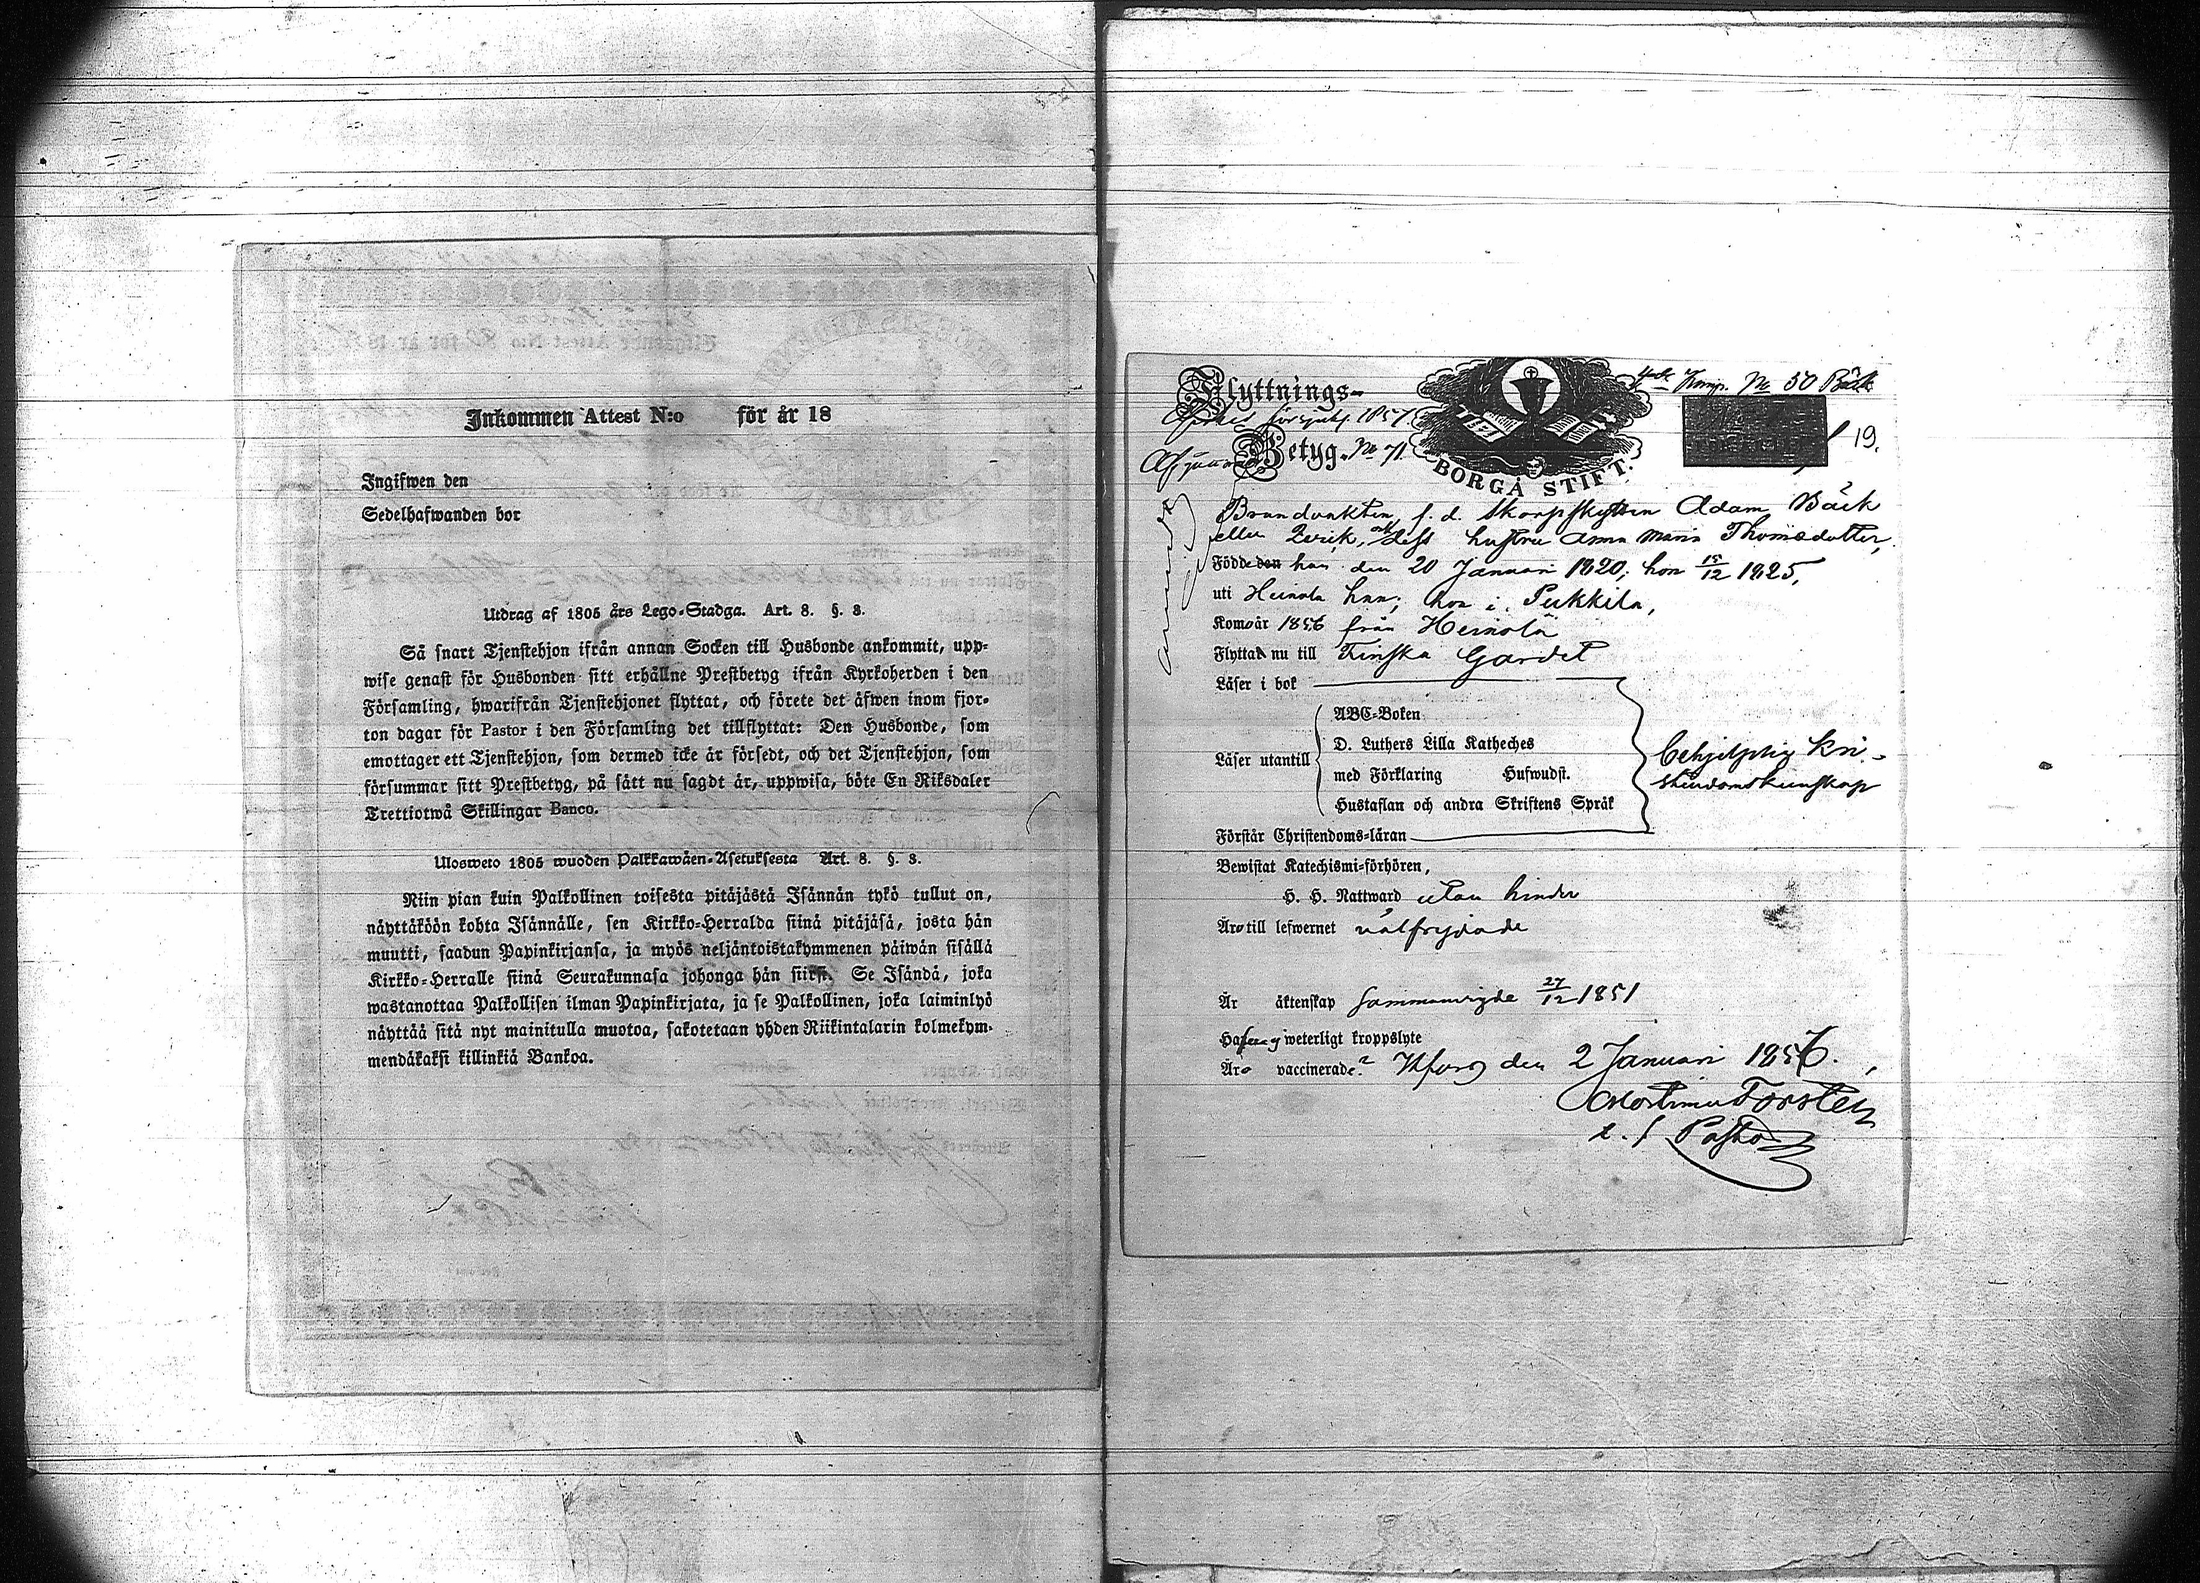 Inkommen Attest N:o för år 18
Ingifwen den
Sedelhafwanden bor
Utdrag af 1805 års Lego-Stadga. Art. 8. §. 3.
Så snart Tjenstehjon ifrån annan Socken till Husbonde ankommit, upp-
wise genast för Husbonden sitt erhållne Prestbetyg ifrån Kyrkoherden i den
Församling, hwarifrån Tjenstehjonet flyttat, och förete det äfwen inom fjor-
ton dagar för Pastor i den Församling det tillflyttat: Den Husbonde, som
emottager ett Tjenstehjon, som dermed icke är försedt, och det Tjenstehjon, som
försummar sitt Prestbetyg, på sätt nu sagdt är, uppwisa, böte En Riksdaler
Trettiotwå Skillingar Banco.
Ulosweto 1805 wuoden Palkkawäen-Asetuksesta Art. 8. §. 3.
Niin pian kuin Palkollinen toisesta pitäjästä Isännän tykö tullut on,
näyttäköön kohta Isännälle, sen Kirkko-Herralda siinä pitäjäsä, josta hän
muutti, saadun Papinkirjansa, ja myös neljäntoistakymmenen päiwän sisällä
Kirkko-Herralle siinä Seurakunnasa johonga hän siirsi. Se Isändä, joka
wastanottaa Palkollisen ilman Papinkirjata, ja se Palkollinen, joka laiminlyö
näyttää sitä nyt mainitulla muotoa, sakotetaan yhden Riikintalarin kolmekym-
mendäkaksi killinkiä Bankoa.
Flyttnings-
1857
Betyg. No 71.
BORGÅ STIFT.
Komp. No 50 Bäck
19.
Brandvakten f. d. Skarpskytten Adam Bäck
eller Zerick, och dess hustru Anna Maria Thomsdotter,
Född den han den 20 Januari 1820; hon 15/12 1825,
uti Heinola han; hon i Pukkila,
Kom år 1856 från Heinola
Flytta nu till Finska Gardet
Läser i bok
Läser utantill
ABC-Boken
D. Luthers Lilla Katheches
med Förklaring Hufwudst.
Hustaflan och andra Skriftens Språk
behjelplig kri-
stendomskunskap
Förstår Christendoms-läran
Bewistat Katechismi-förhören,
H. H. Nattward utan hinder
Äro till lefwernet välfrejdade
Är äktenskap sammanvigde 27/12 1851
Hafva ej weterligt kroppslyte
Äro vaccinerade? H:fors den 2 Januari 1857.
Forstén
Pastor